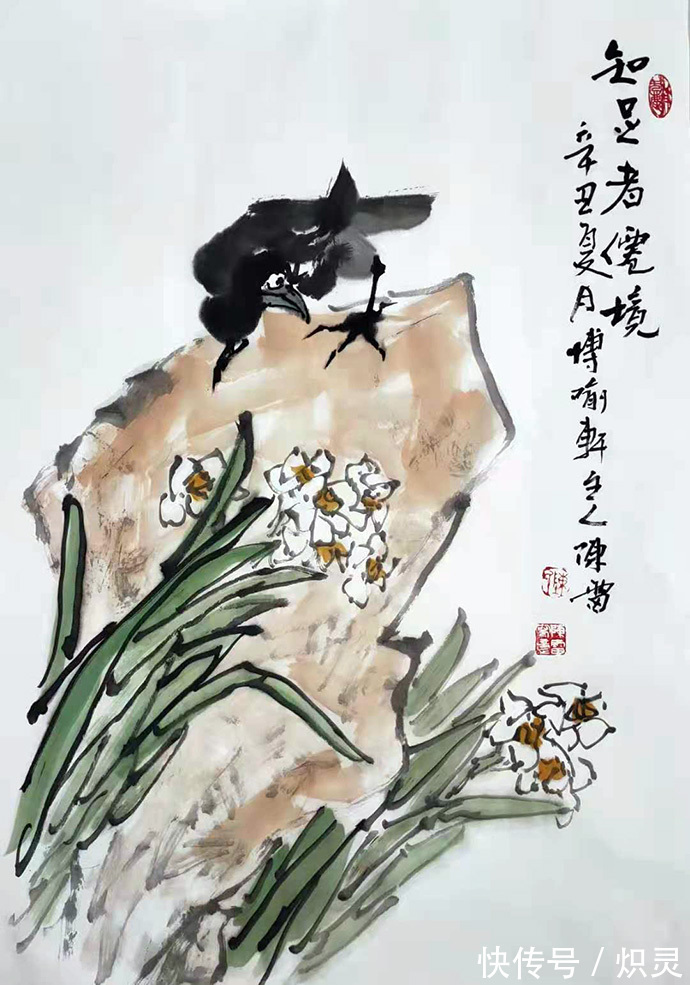 知足者僊境
辛丑夏月博瑜軒主人陳雷
快传号 / 炽灵